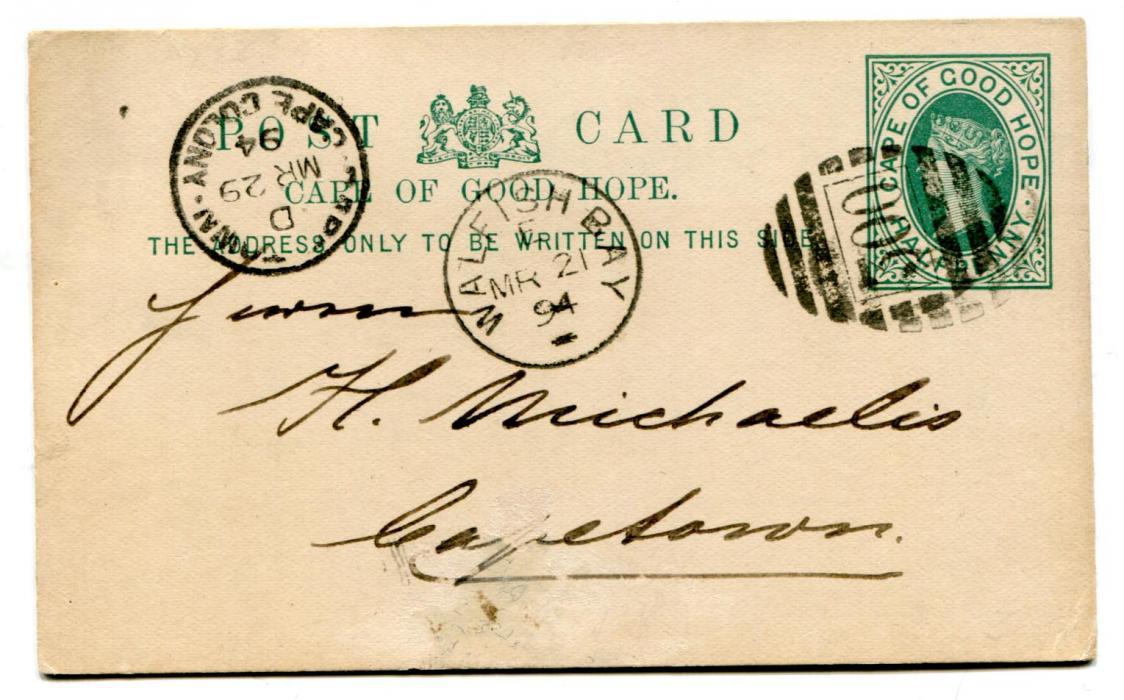 POST CARD
CAPE OF GOOD HOPE.
THE ADDRESS ONLY TO BE WRITTEN ON THIS SIDE.
CAPE OF GOOD HOPE
HALF PENNY
CAPE COLONY
D
MR 29
94
WALFISH BAY
MR 21
94
Herrn
H. Michaelis
Capetown.